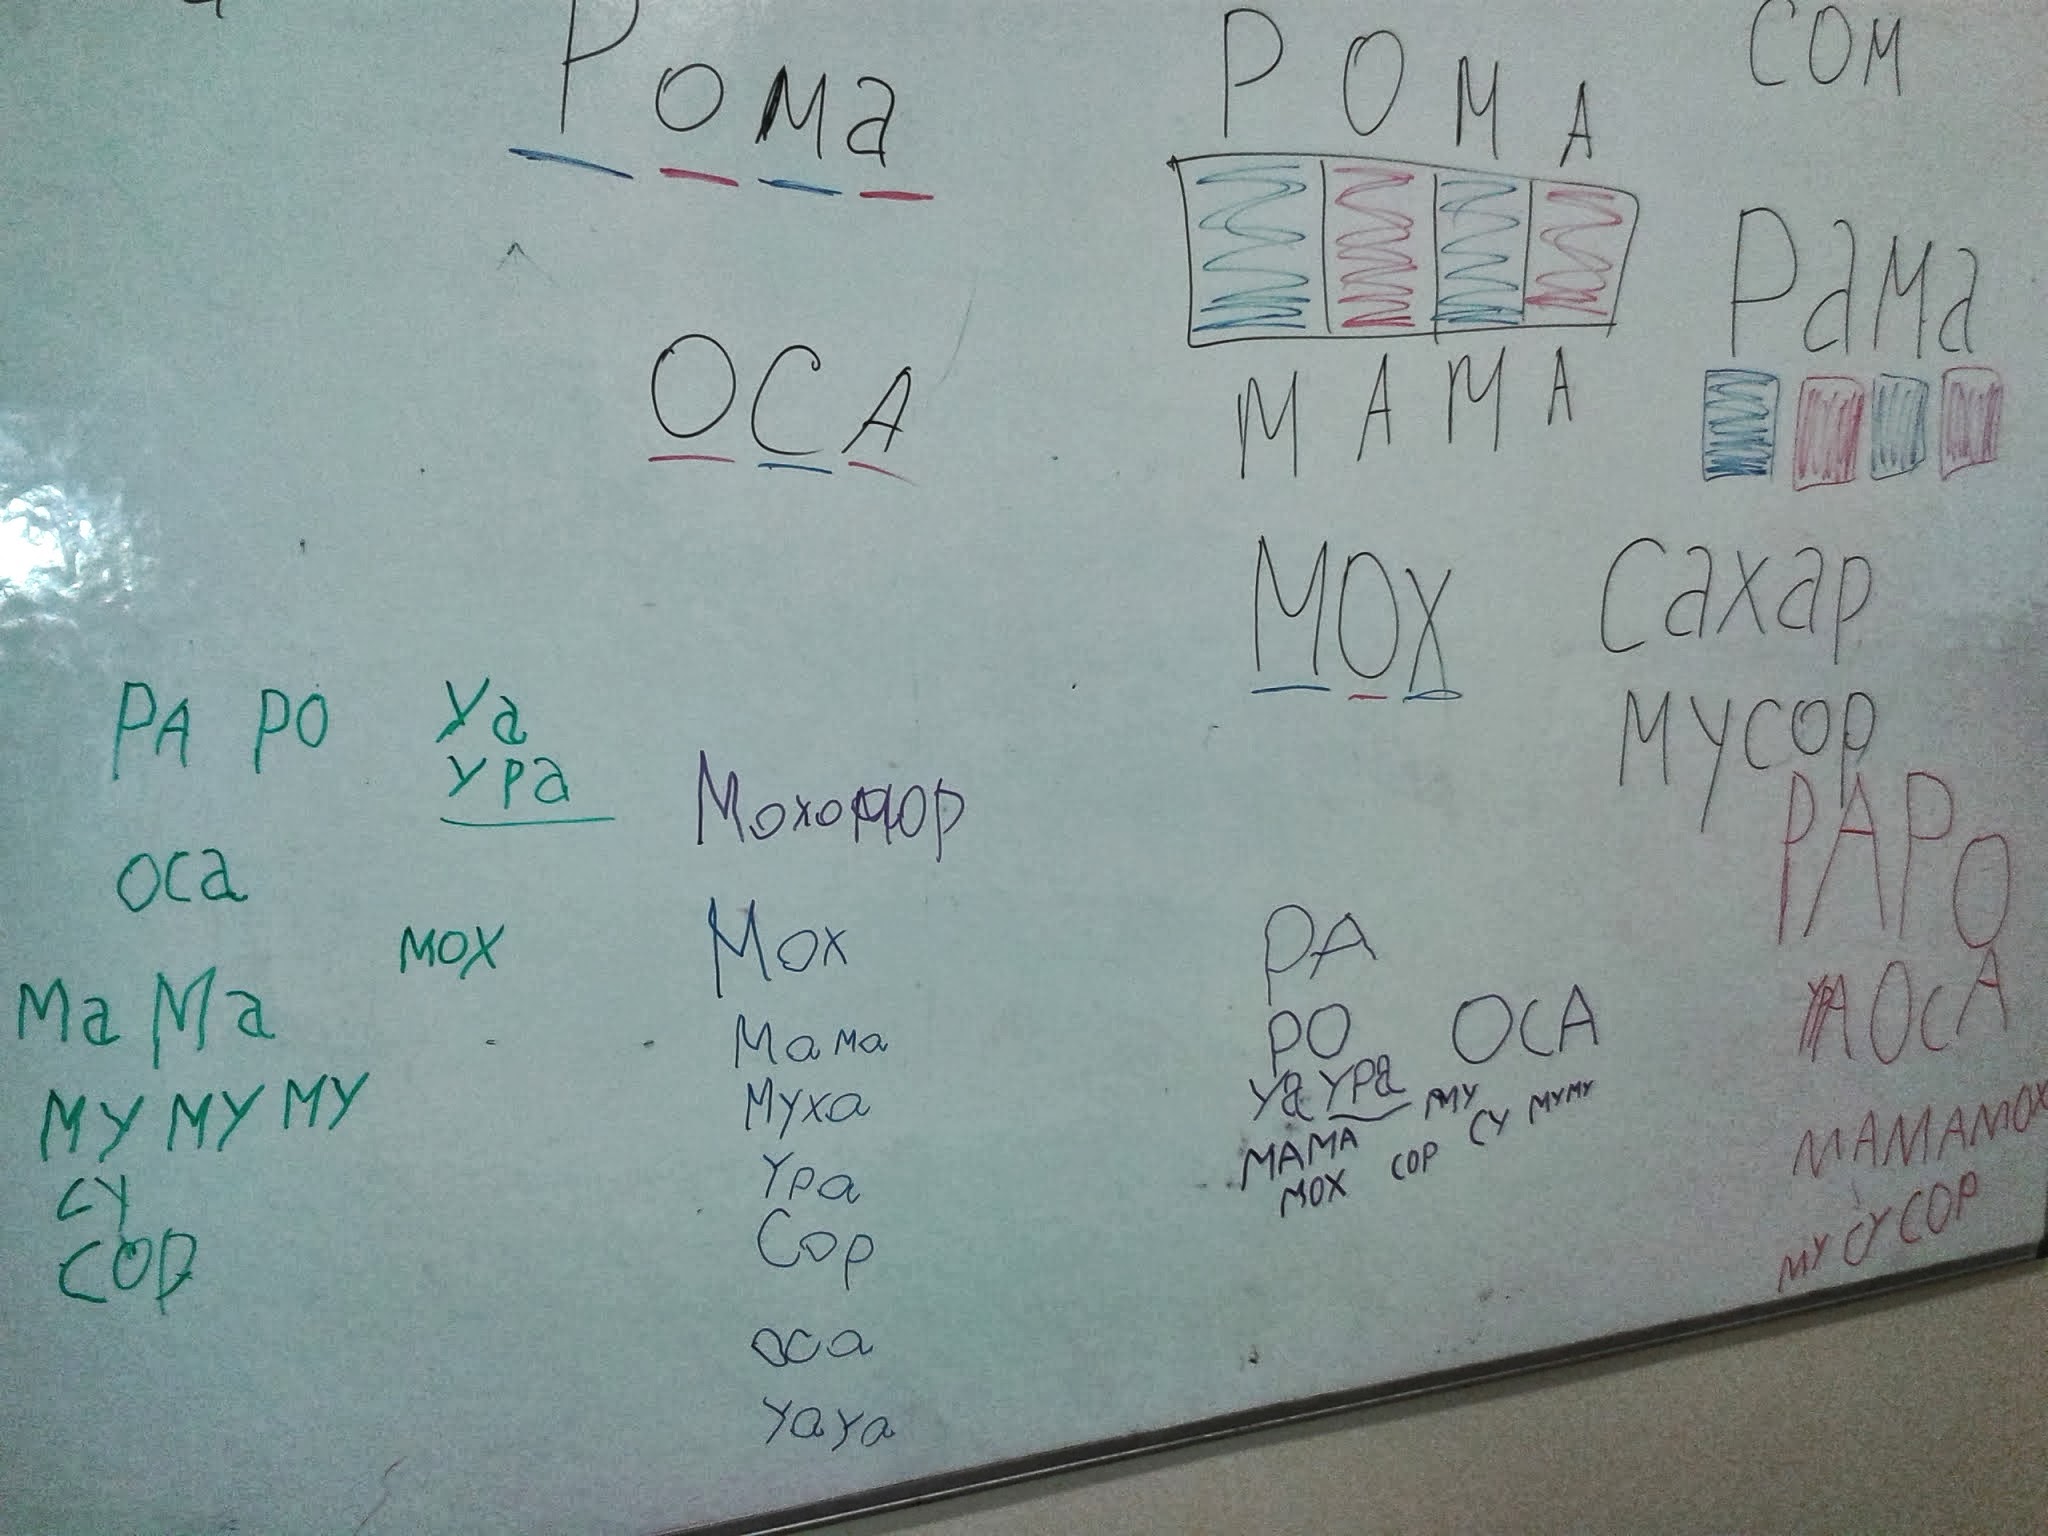 Рома
ОСА
РОМА
МАМА
СОМ
Рама
МОХ
Сахар
мусор
РА РО Уа
ура
оса
мох
Ма Ма
МУ МУ МУ
СУ
СОР
Мох
Мама
Муха
Ура
Сор
оса
уауа
РА
РО ОСА
Уа ура МУ СУ МУМУ
МАМА СОР
МОХ
РАРО
ОСА
МАМАМОХ
МУСУСОР